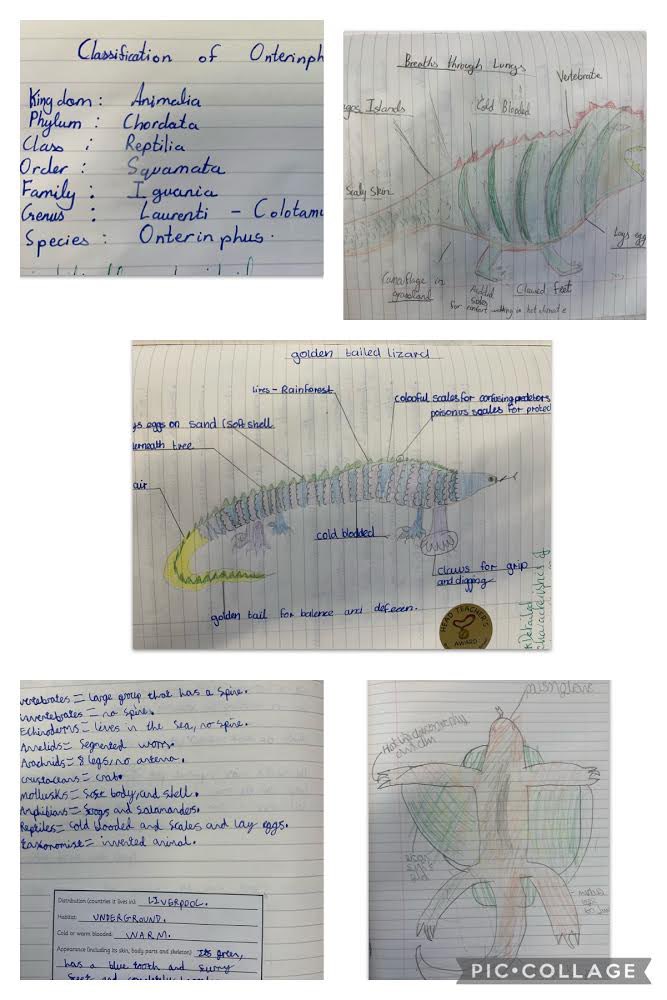 Classification of Onterinph
Kingdom: Animalia
Phylum: Chordata
Class: Reptilia
Order: Squamata
Family: Iguania
Genus: Laurenti - Colotamu
Species: Onterinphus.
Breaths through Lungs
Vertebrate
gos Islands
Cold Blooded
Scaly Skin
Lays egg
Camoflage in
grassland
Clawed Feet
for comfort walking in hot climate
golden tailed lizard
lives - Rainforest
colouful scales for confusing predetors
poisonus scales for protec
ys eggs on sand (soft shell
erneath tree
air
cold blodded
claws for grip
and digging
golden tail for balence and defecen.
HEAD TEACHER'S
AWARD
Detailed
characteristics of
vertebrates = large group that has a spine.
invertebrates = no spine.
Echinoderms = lives in the sea, no spine.
Annelids = Segmented worm.
Arachnids = 8 legs, no antenna.
crustaceans = crab.
Mollusks = Soft body, and shell.
Amphibians = frogs and Salamanders.
Reptiles = Cold blooded and Scales and lay eggs.
taxonomist = invented animal.
Distribution (countries it lives in): LIVERPOOL.
Habitat: UNDERGROUND.
Cold or warm blooded: WARM.
Appearance (including its skin, body parts and skeleton) Its green,
has a blue tooth and
PIC•COLLAGE